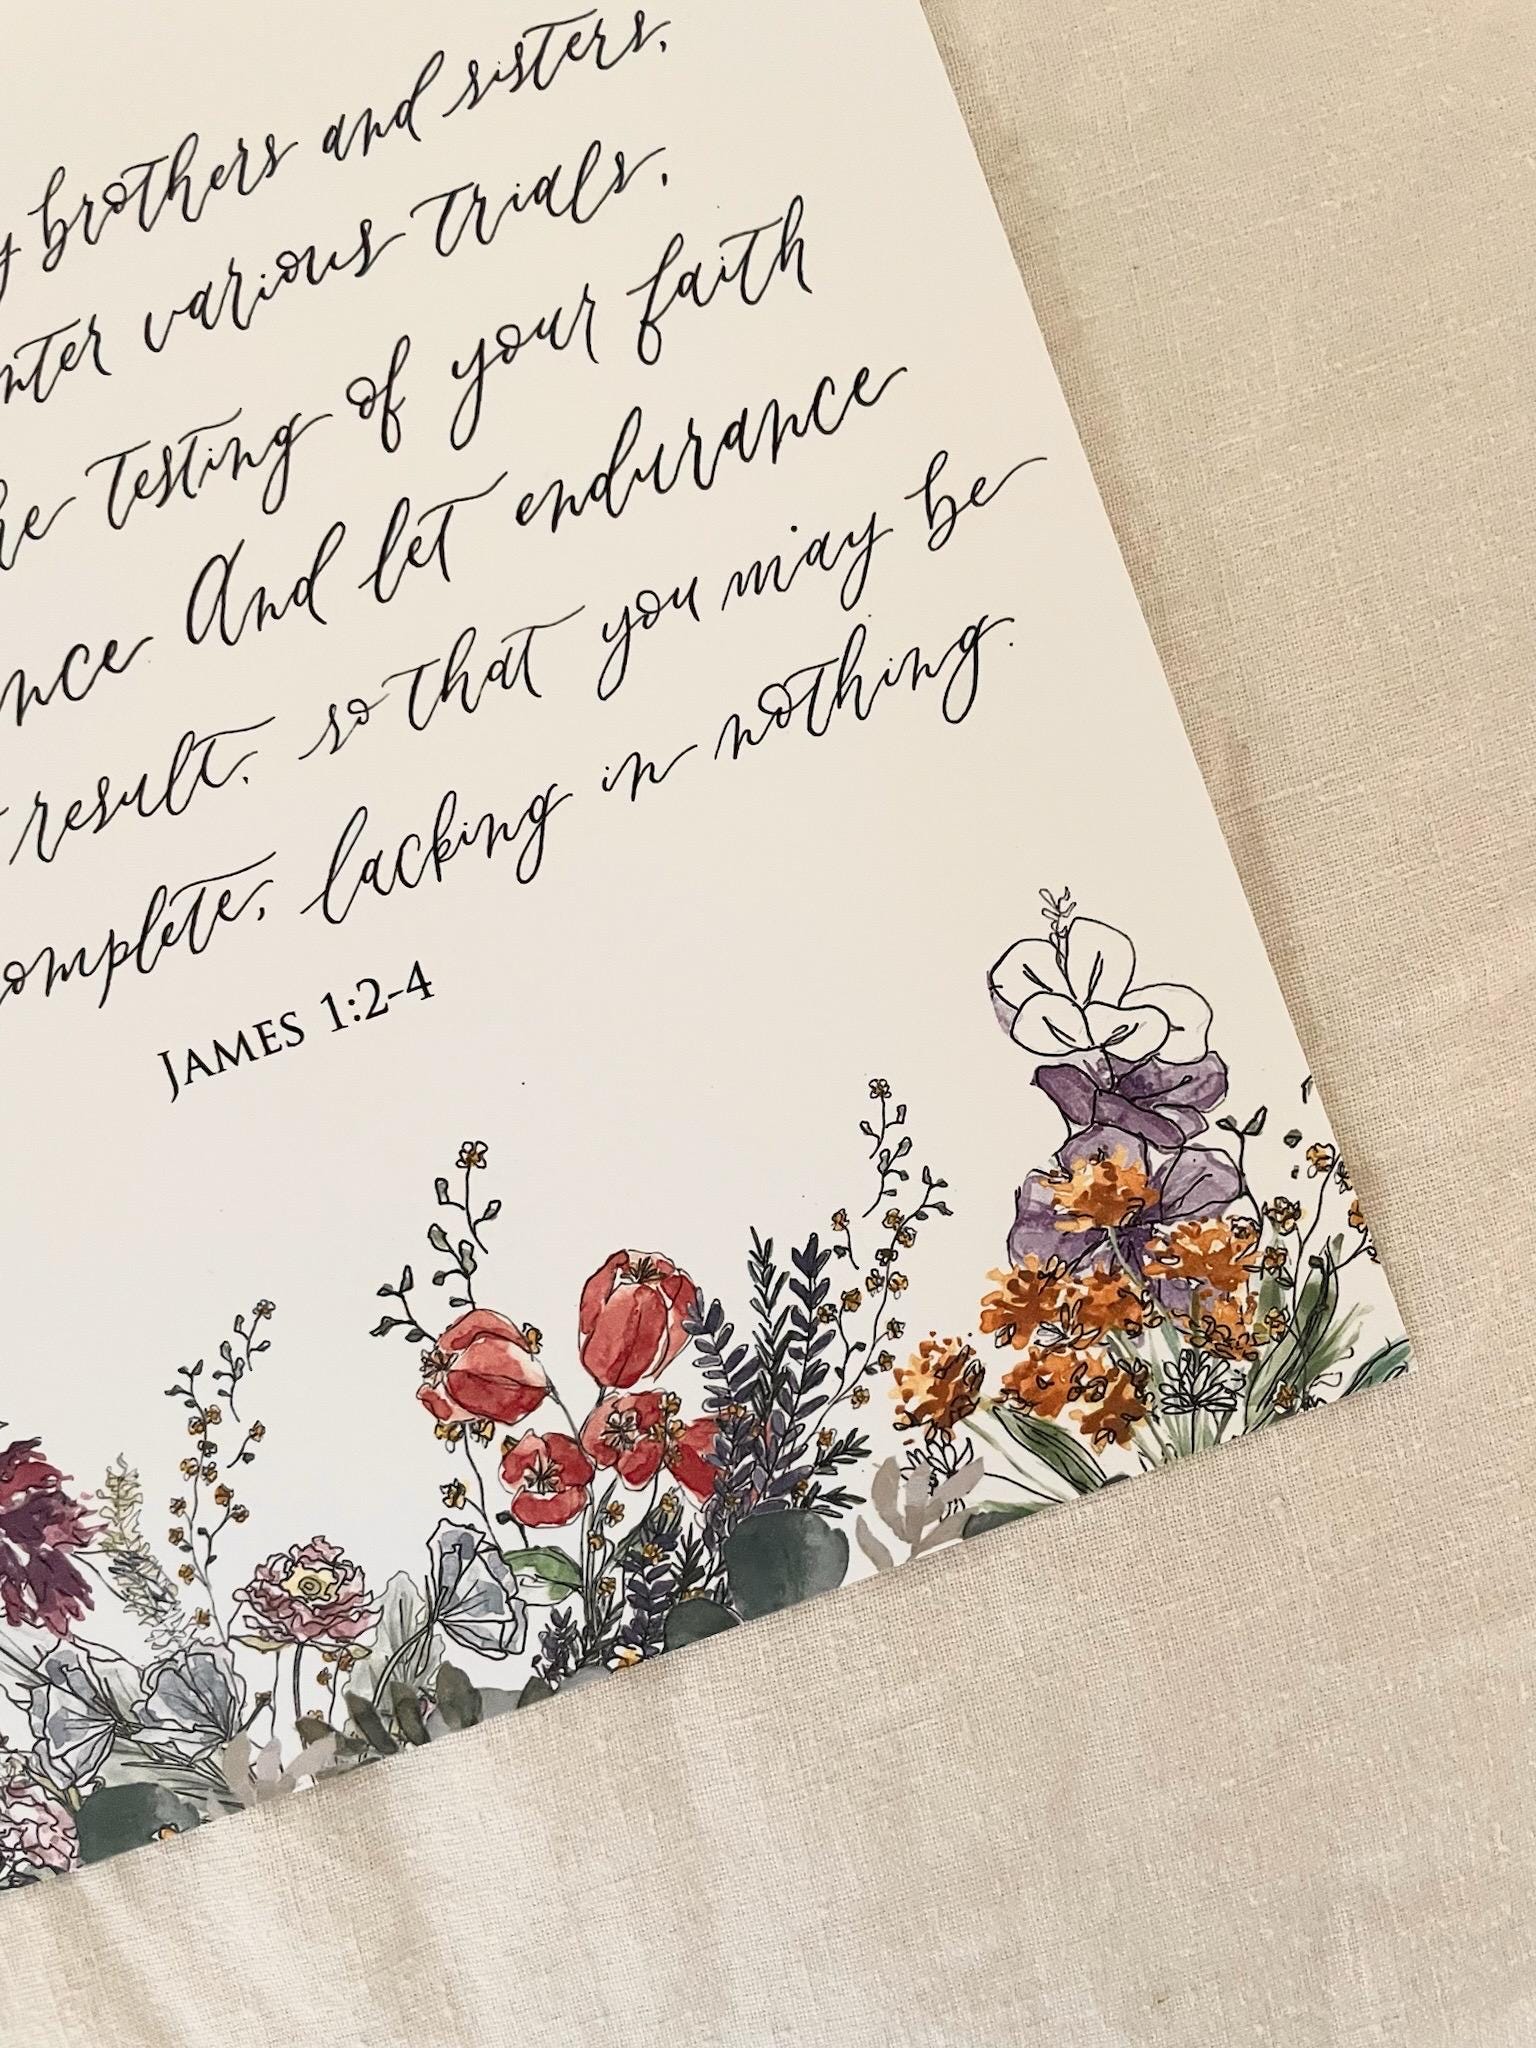 y brothers and sisters,
nter various trials,
he testing of your faith
nce And let endurance
result, so that you may be
omplete, lacking in nothing.
James 1:2-4